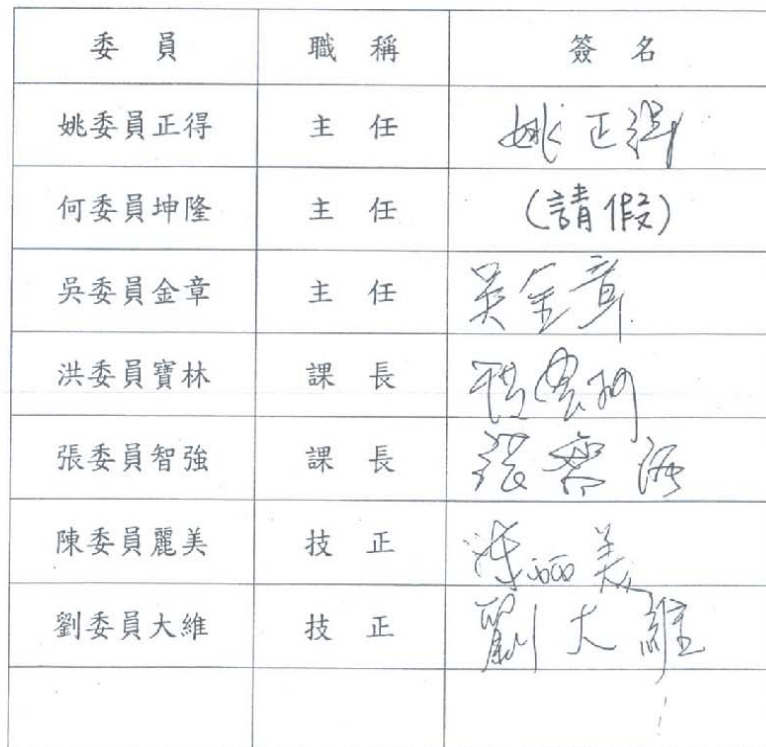 委員 職稱 簽名
姚委員正得 主任 姚正得
何委員坤隆 主任 (請假)
吳委員金章 主任 吳金章
洪委員寶林 課長
張委員智強 課長
陳委員麗美 技正 陳麗美
劉委員大維 技正 劉大維